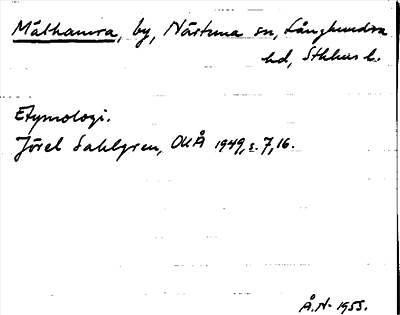 Målhamra, by, Närtuna sn, Långhundra
hd, Sthlms l.
Etymologi.
Jöran Sahlgren, OUÅ 1949, s. 7, 16.
Å. N. 1955.